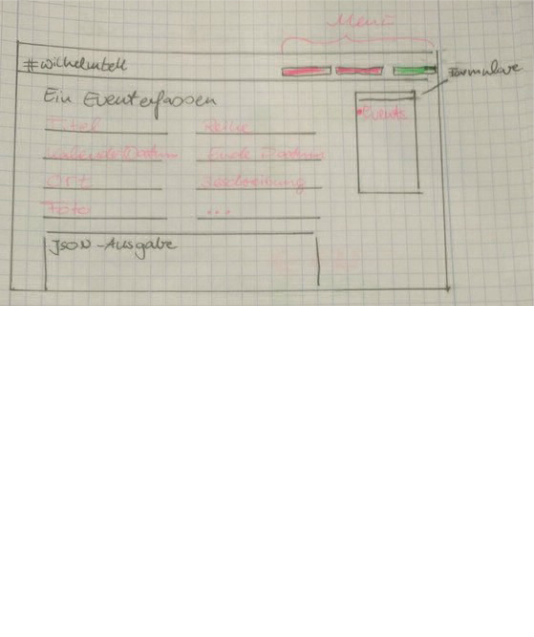 Menü
#wilhelmtell
Formulare
Ein Event erfassen
Events
Titel
Reihe
Datum
Ende Datum
Ort
Beschreibung
Foto
...
JSON-Ausgabe